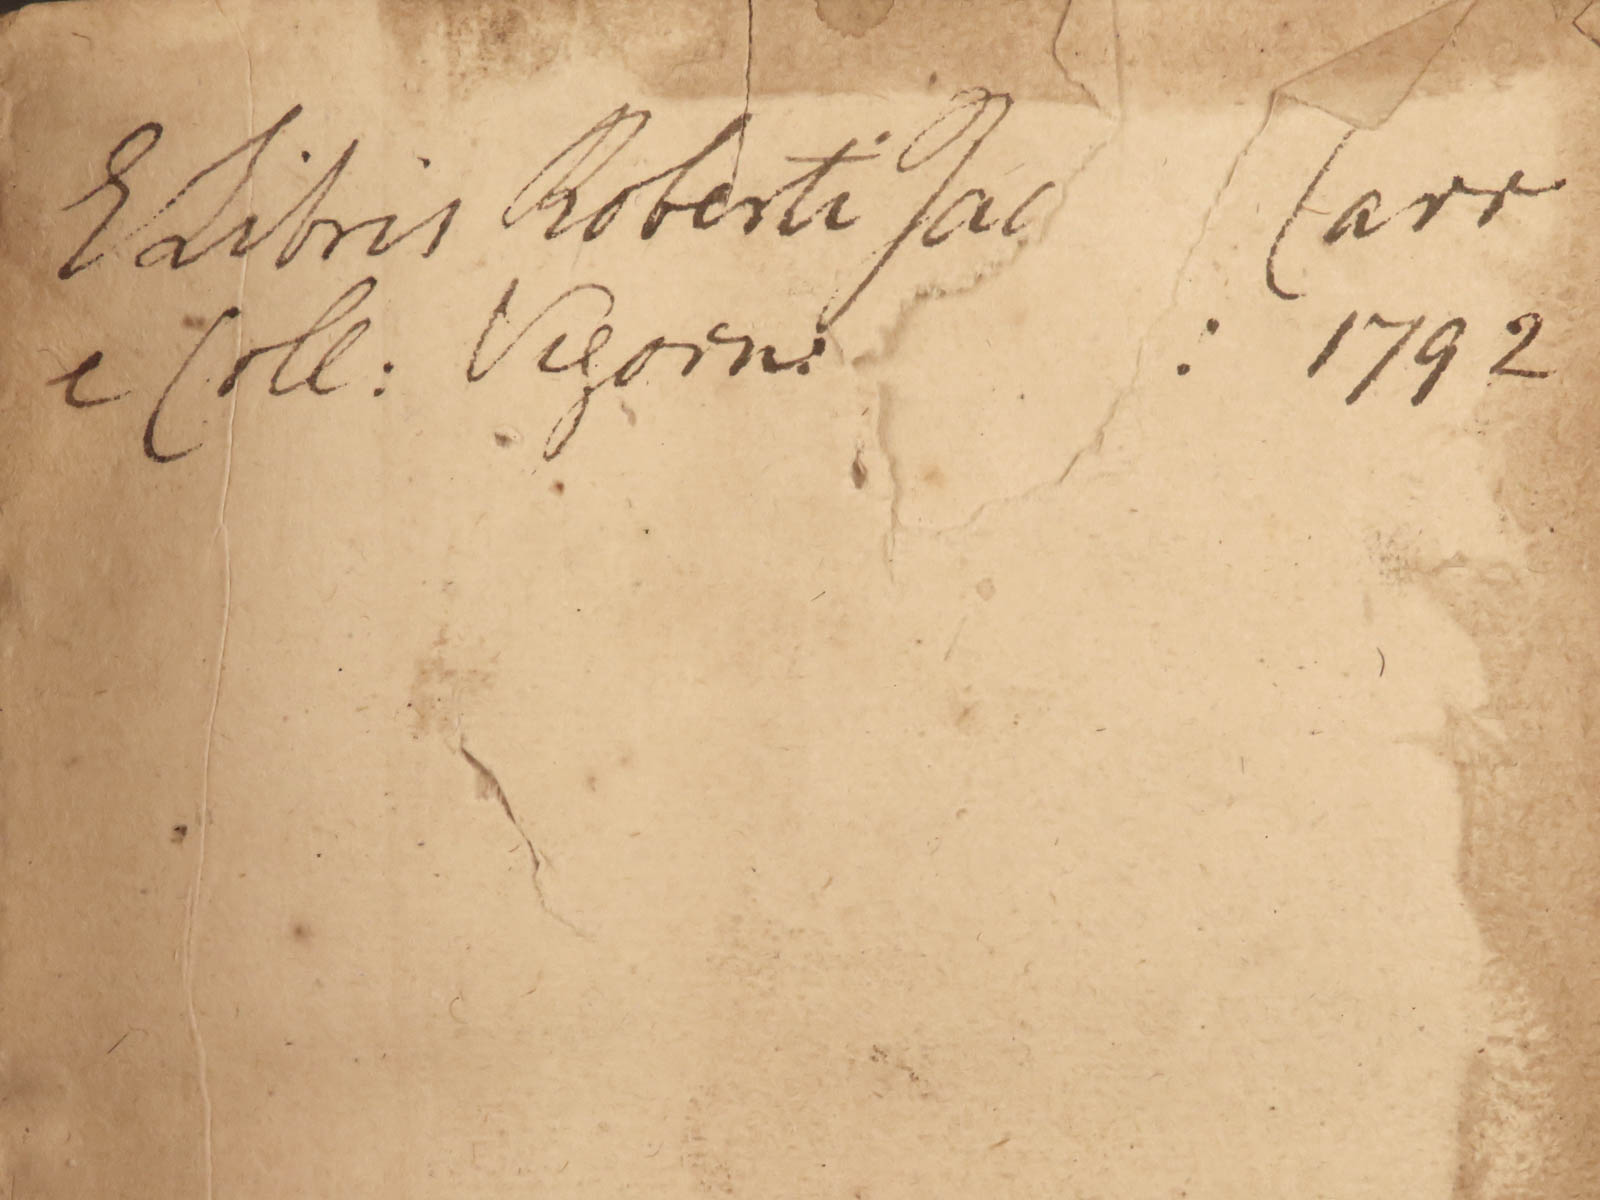 E Libris Roberti Jac Carr
e Coll: Vigorn: : 1792